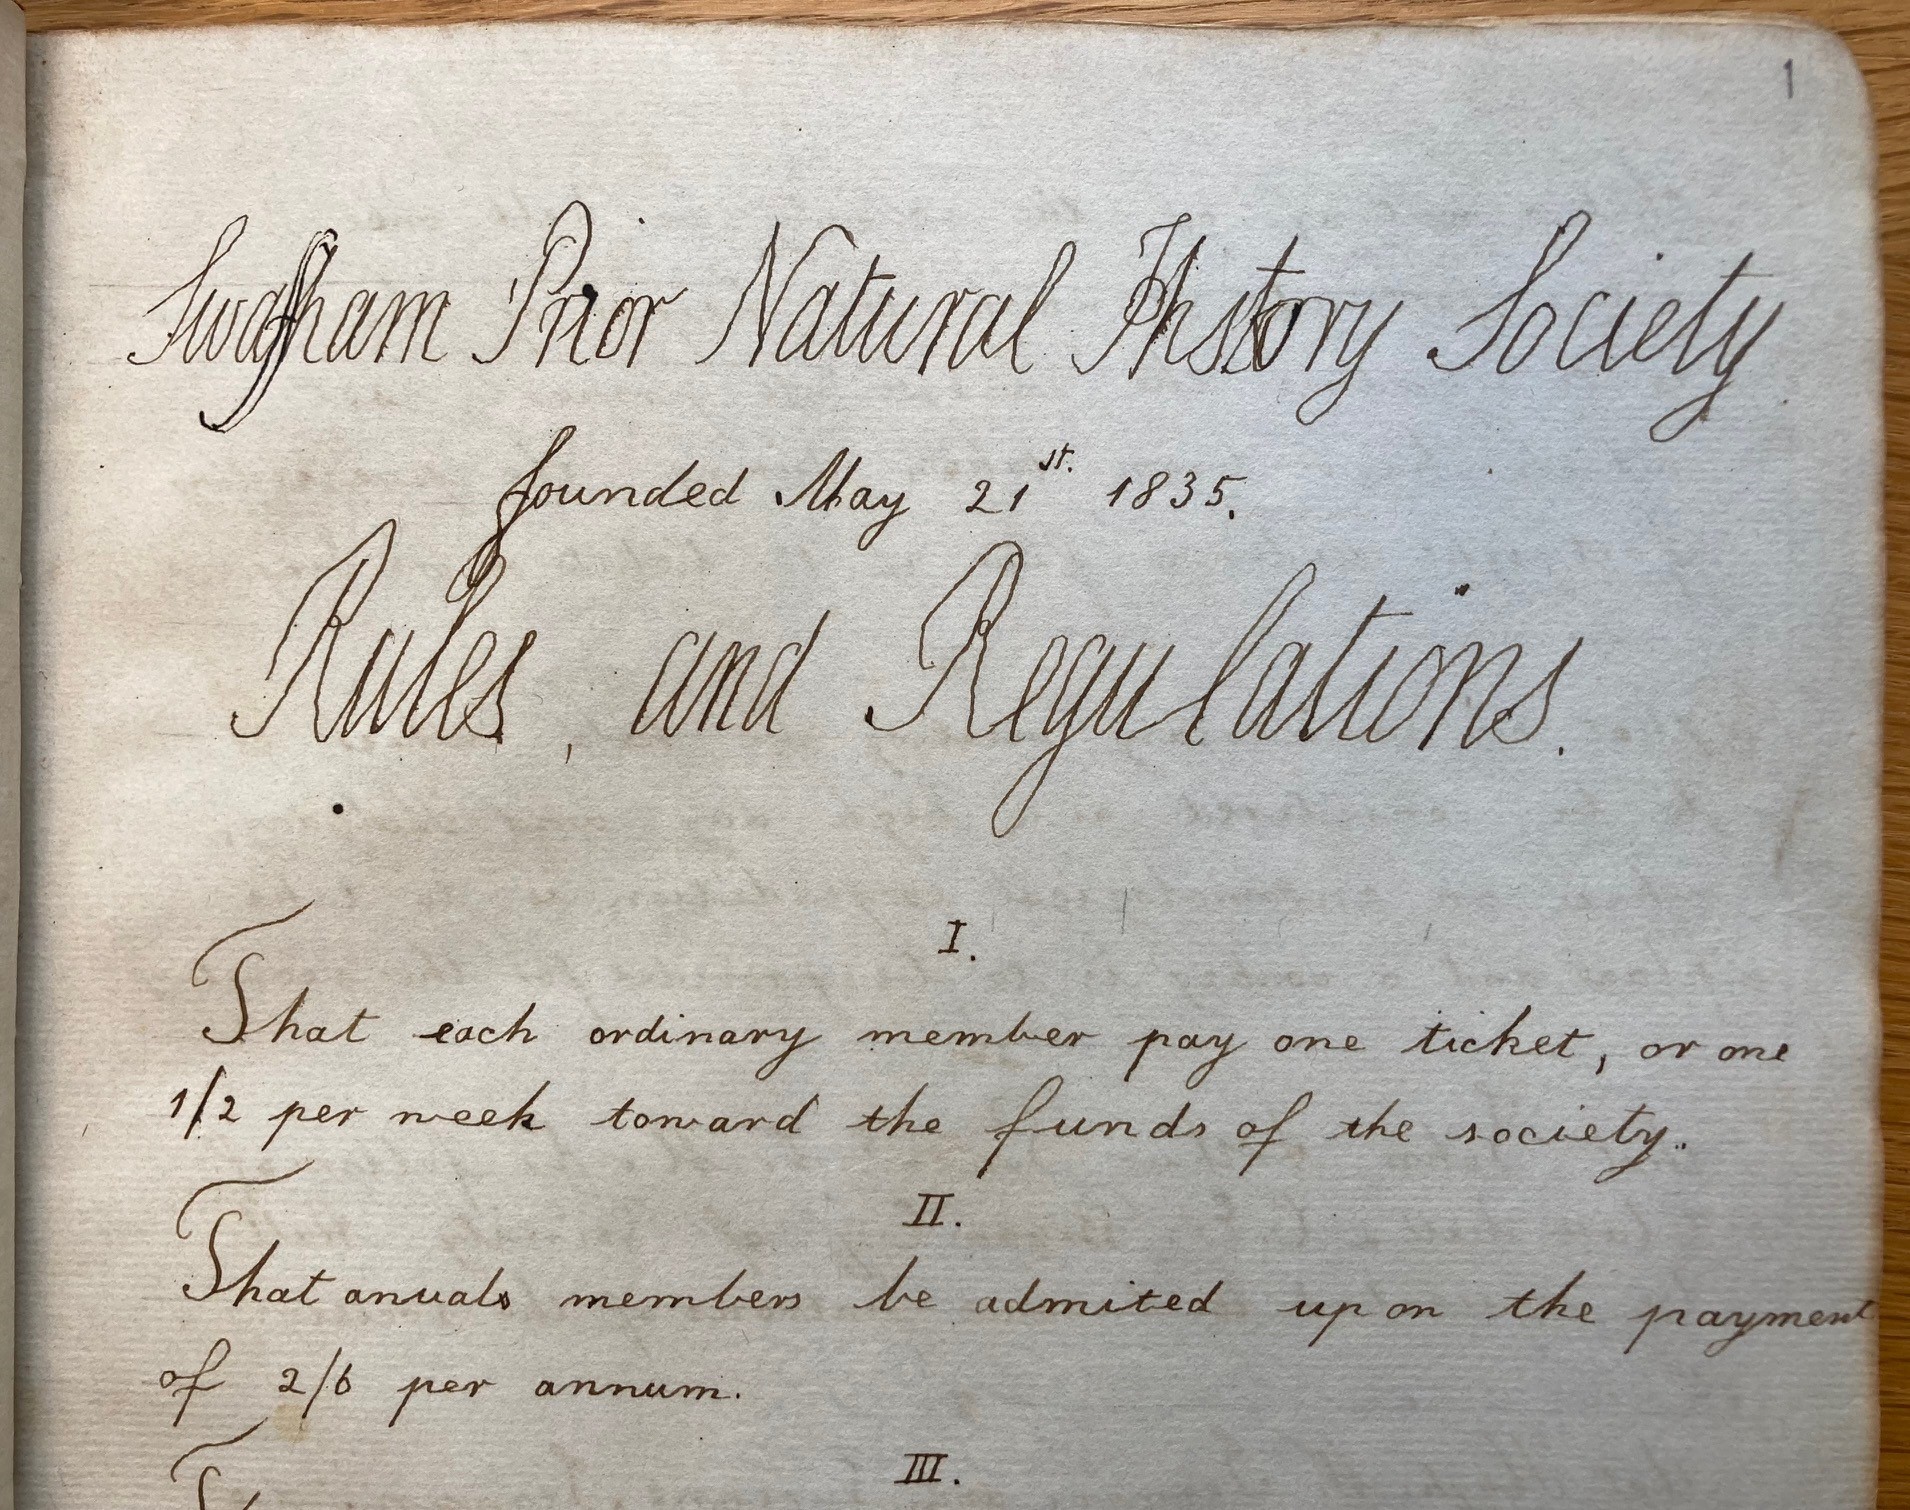 1
Swaffham Prior Natural History Society
founded May 21st. 1835.
Rules, and Regulations.
I.
That each ordinary member pay one ticket, or one
1/2 per week toward the funds of the society..
II.
That anuals members be admited upon the payment
of 2/6 per annum.
III.